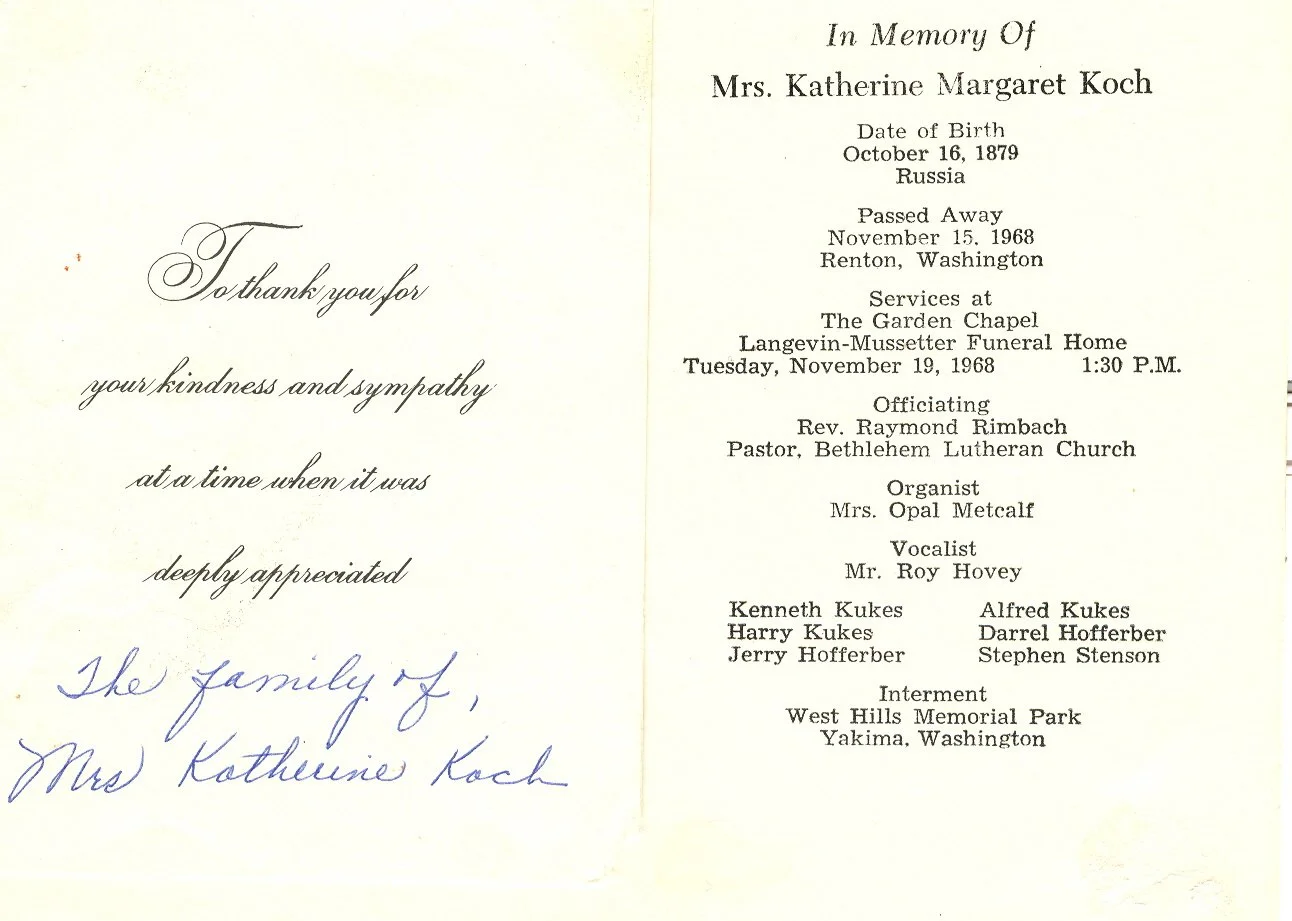 To thank you for
your kindness and sympathy
at a time when it was
deeply appreciated
The family of,
Mrs Katherine Koch
In Memory Of
Mrs. Katherine Margaret Koch
Date of Birth
October 16, 1879
Russia
Passed Away
November 15, 1968
Renton, Washington
Services at
The Garden Chapel
Langevin-Mussetter Funeral Home
Tuesday, November 19, 1968 1:30 P.M.
Officiating
Rev. Raymond Rimbach
Pastor, Bethlehem Lutheran Church
Organist
Mrs. Opal Metcalf
Vocalist
Mr. Roy Hovey
Kenneth Kukes Alfred Kukes
Harry Kukes Darrel Hofferber
Jerry Hofferber Stephen Stenson
Interment
West Hills Memorial Park
Yakima, Washington